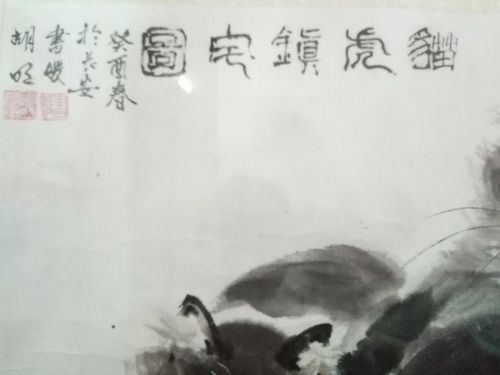 貓虎鎮宅圖
癸酉春
於長安
書峻
胡明